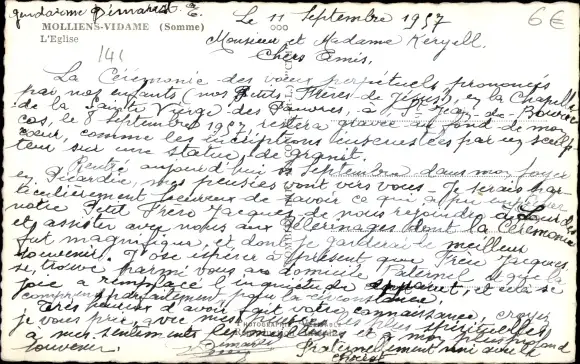 gendarme Dimarest
MOLLIENS-VIDAME (Somme)
L'Eglise
141
6€
Le 11 Septembre 1957
Monsieur et Madame Keryell.
Chers Amis,
La Cérémonie des vœux perpétuels prononcés
par nos enfants (nos Petits Frères de Jésus), en la Chapelle
de la Sainte Vierge des Pauvres, à St Jean de
le 8 Septembre 1957, restera gravée au fond de mon
cœur, comme les inscriptions incrustées par un sculp
teur sur une statue, de granit.
Rentré aujourd'hui Septembre dans mon foyer
en Picardie, mes pensées vont vers vous - Je serais par-
ticulièrement heureux de savoir ce qui a
notre Petit Frère Jacques de nous rejoindre à Lourdes
et assister avec nous aux Pèlerinages dont la Cérémonie
fut magnifique, et dont je garderai le meilleur
souvenir. J'ose espérer à présent que Frère Jacques
se trouve parmi vous au domicile Paternel et que la
joie a remplacé l'inquiétude et cela se
comprend parfaitement, vu la circonstance.
Très heureux d'avoir fait votre connaissance, croyez
je vous prie, avec mes plus spirituelles
à mes sentiments les meilleurs et à mon plus profond
souvenir. Fraternellement uni avec le
Christ